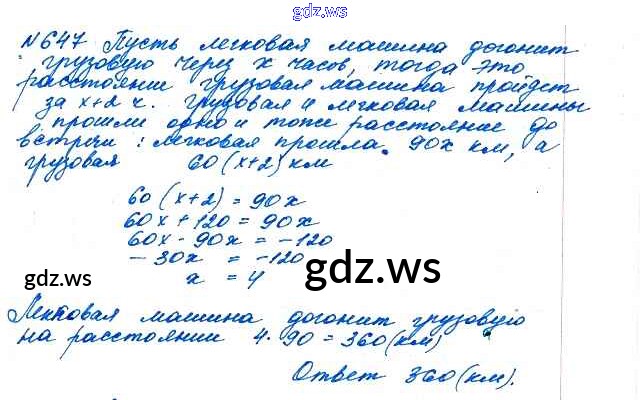 gdz.ws
№647 Пусть легковая машина догонит
грузовую через x часов, тогда это
расстояние грузовая машина пройдет
за x+2 ч. грузовая и легковая машины
прошли одно и тоже расстояние до
встречи: легковая прошла 90x км, а
грузовая 60(x+2) км
60(x+2) = 90x
60x+120 = 90x
60x-90x = -120
-30x = -120
x = 4
gdz.ws
gdz.ws
Легковая машина догонит грузовую
на расстоянии 4·90=360(км)
Ответ 360(км).
gdz.ws